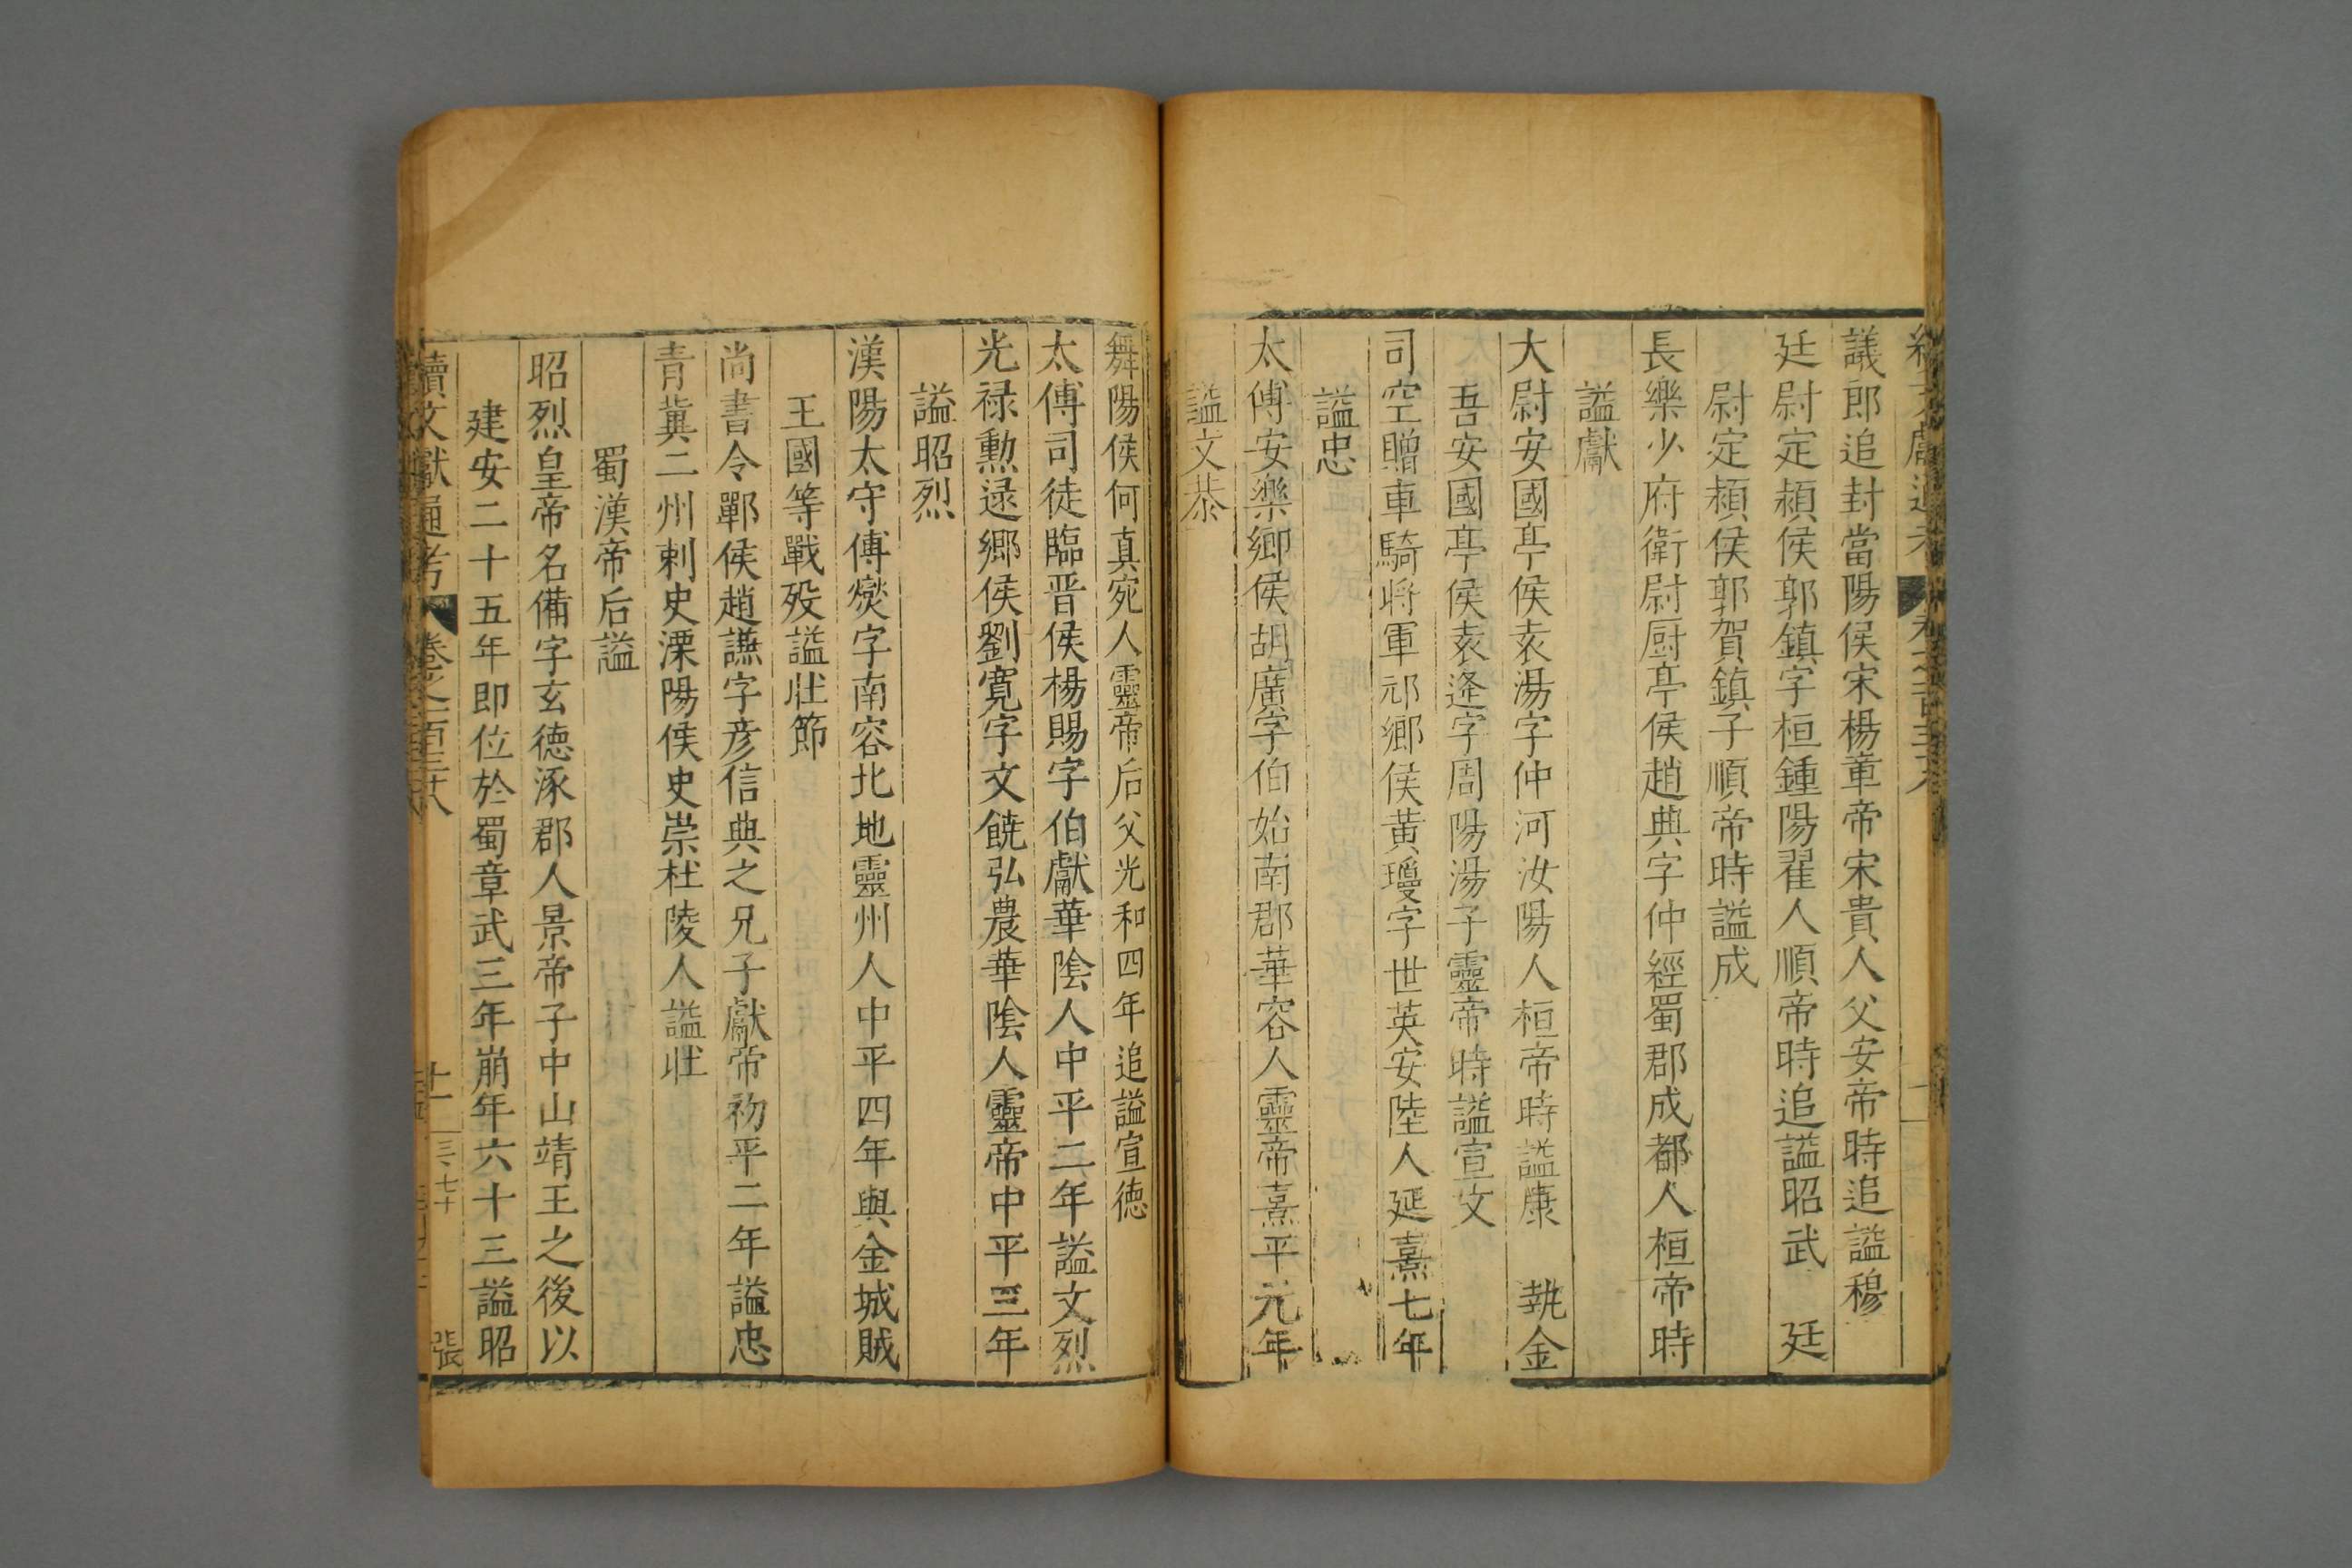 議郎追封當陽侯宋楊章帝宋貴人父安帝時追謚穆
廷尉定潁侯郭鎮字桓鍾陽翟人順帝時追謚昭武 廷
尉定潁侯郭賀鎮子順帝時謚成
長樂少府衛尉厨亭侯趙典字仲經蜀郡成都人桓帝時
謚獻
大尉安國亭侯袁湯字仲河汝陽人桓帝時謚康 執金
吾安國亭侯袁逄字周陽湯子靈帝時謚宣文
司空贈車騎將軍祁鄉侯黃瓊字世英安陸人延熹七年
謚忠
太傅安樂鄉侯胡廣字伯始南郡華容人靈帝熹平元年
謚文恭
舞陽侯何真宛人靈帝后父光和四年追謚宣德
太傅司徒臨晋侯楊賜字伯獻華陰人中平二年謚文烈
光禄勲逯鄉侯劉寬字文饒弘農華陰人靈帝中平三年
謚昭烈
漢陽太守傅燮字南容北地靈州人中平四年與金城賊
王國等戰歿謚壯節
尚書令鄲侯趙謙字彥信典之兄子獻帝初平二年謚忠
青冀二州刺史溧陽侯史崇杜陵人謚壯
蜀漢帝后謚
昭烈皇帝名備字玄德涿郡人景帝子中山靖王之後以
建安二十五年即位於蜀章武三年崩年六十三謚昭
續文獻通考 卷之一百三十八 十一 張